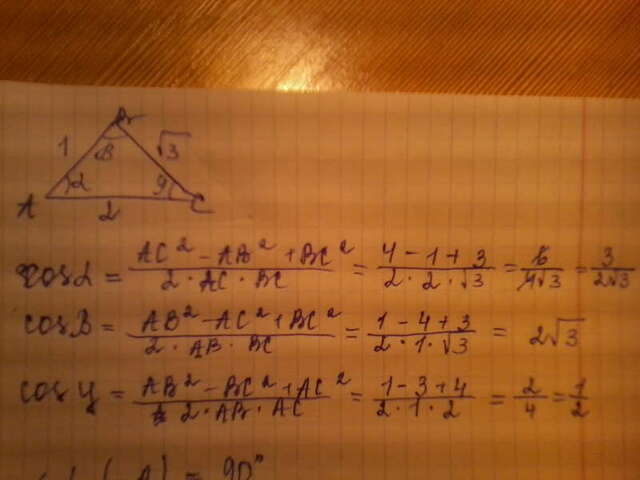 B
1 β √3
α γ
A 2 C
cos α = AC² - AB² + BC² / 2 · AC · BC = 4 - 1 + 3 / 2 · 2 · √3 = 6 / 4√3 = 3 / 2√3
cos β = AB² - AC² + BC² / 2 · AB · BC = 1 - 4 + 3 / 2 · 1 · √3 = 2√3
cos γ = AB² - BC² + AC² / 2 · AB · AC = 1 - 3 + 4 / 2 · 1 · 2 = 2 / 4 = 1 / 2
A) = 90°